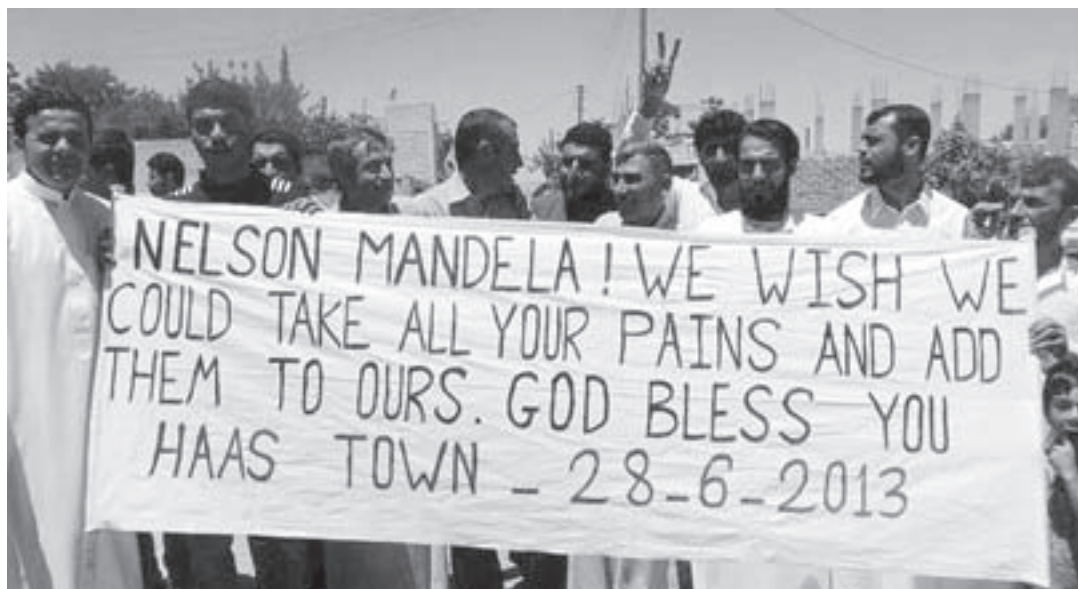 NELSON MANDELA! WE WISH WE
COULD TAKE ALL YOUR PAINS AND ADD
THEM TO OURS. GOD BLESS YOU
HAAS TOWN - 28-6-2013